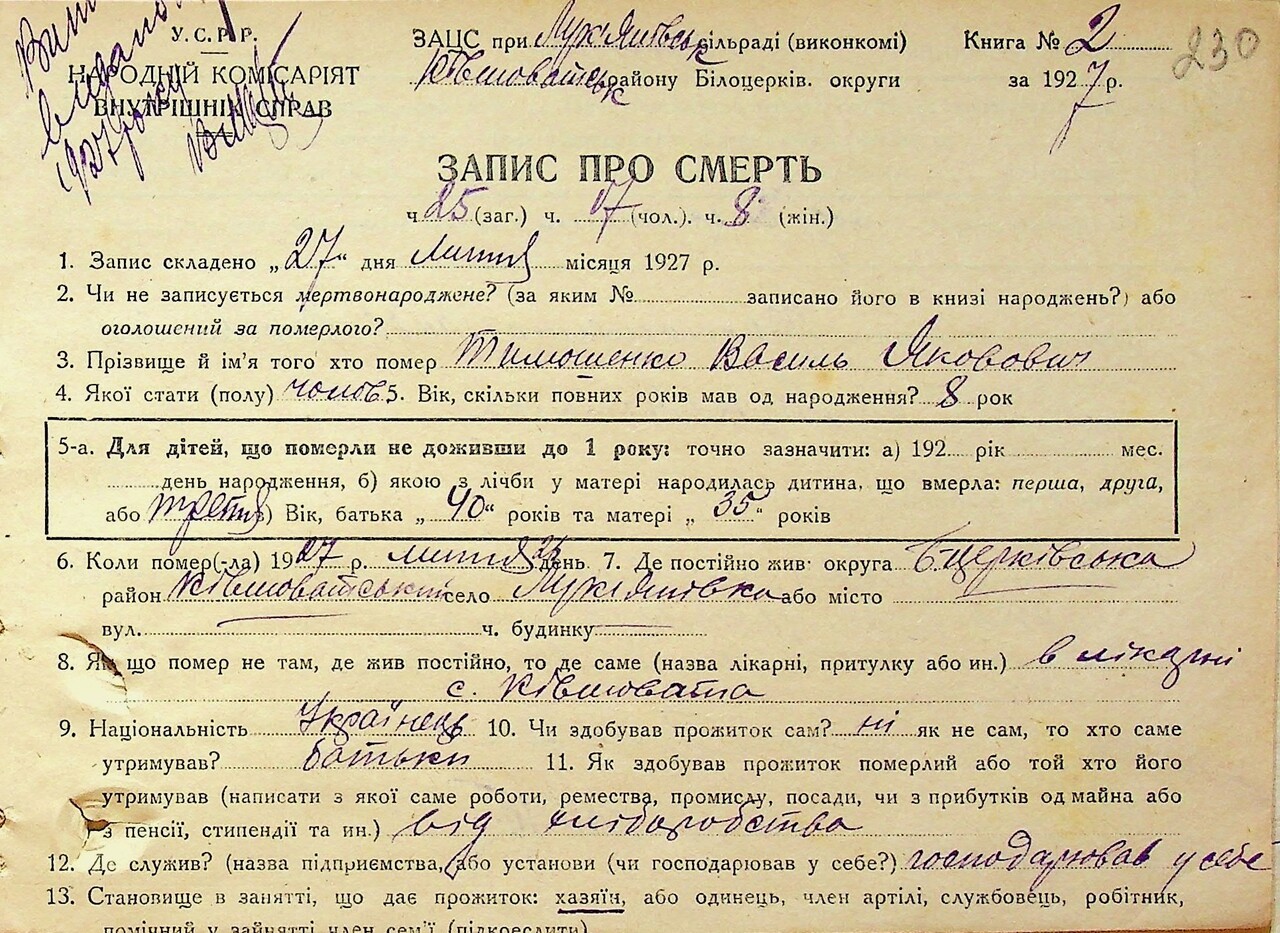 У.С.Р.Р.
НАРОДНІЙ КОМІСАРІЯТ
ВНУТРІШНІХ СПРАВ
1927 року
ЗАЦС при Лук'янівськ сільраді (виконкомі)
Ківшоватськ району Білоцерків. округи
Книга № 2
за 1927 р.
230
ЗАПИС ПРО СМЕРТЬ
ч 25 (заг.) ч. 17 (чол.). ч. 8 (жін.)
1. Запис складено „27“ дня липня місяця 1927 р.
2. Чи не записується мертвонароджене? (за яким № записано його в книзі народжень?) або
оголошений за померлого?
3. Прізвище й ім'я того хто помер Тимошенко Василь Якович
4. Якої стати (полу) чолов 5. Вік, скільки повних років мав од народження? 8 рок
5-а. Для дітей, що померли не доживши до 1 року: точно зазначити: а) 192 рік мес.
день народження, б) якою з лічби у матері народилась дитина, що вмерла: перша, друга,
або третя) Вік, батька „40“ років та матері „35“ років
6. Коли помер(-ла) 1927 р. липня день 7. Де постійно жив округа Б церківська
район Ківшоватський село Лук'янівка або місто
вул. ч. будинку
8. Як що помер не там, де жив постійно, то де саме (назва лікарні, притулку або ин.) в лікарні
с. Ківшовата
9. Національність Українець 10. Чи здобував прожиток сам? ні як не сам, то хто саме
утримував? батьки 11. Як здобував прожиток померлий або той хто його
утримував (написати з якої саме роботи, ремества, промислу, посади, чи з прибутків од майна або
з пенсії, стипендії та ин.) від хліборобства
12. Де служив? (назва підприємства, або установи (чи господарював у себе?) господарював у себе
13. Становище в занятті, що дає прожиток: хазяїн, або одинець, член артілі, службовець, робітник,
помічний у зайнятті член сем'ї (підкреслити)